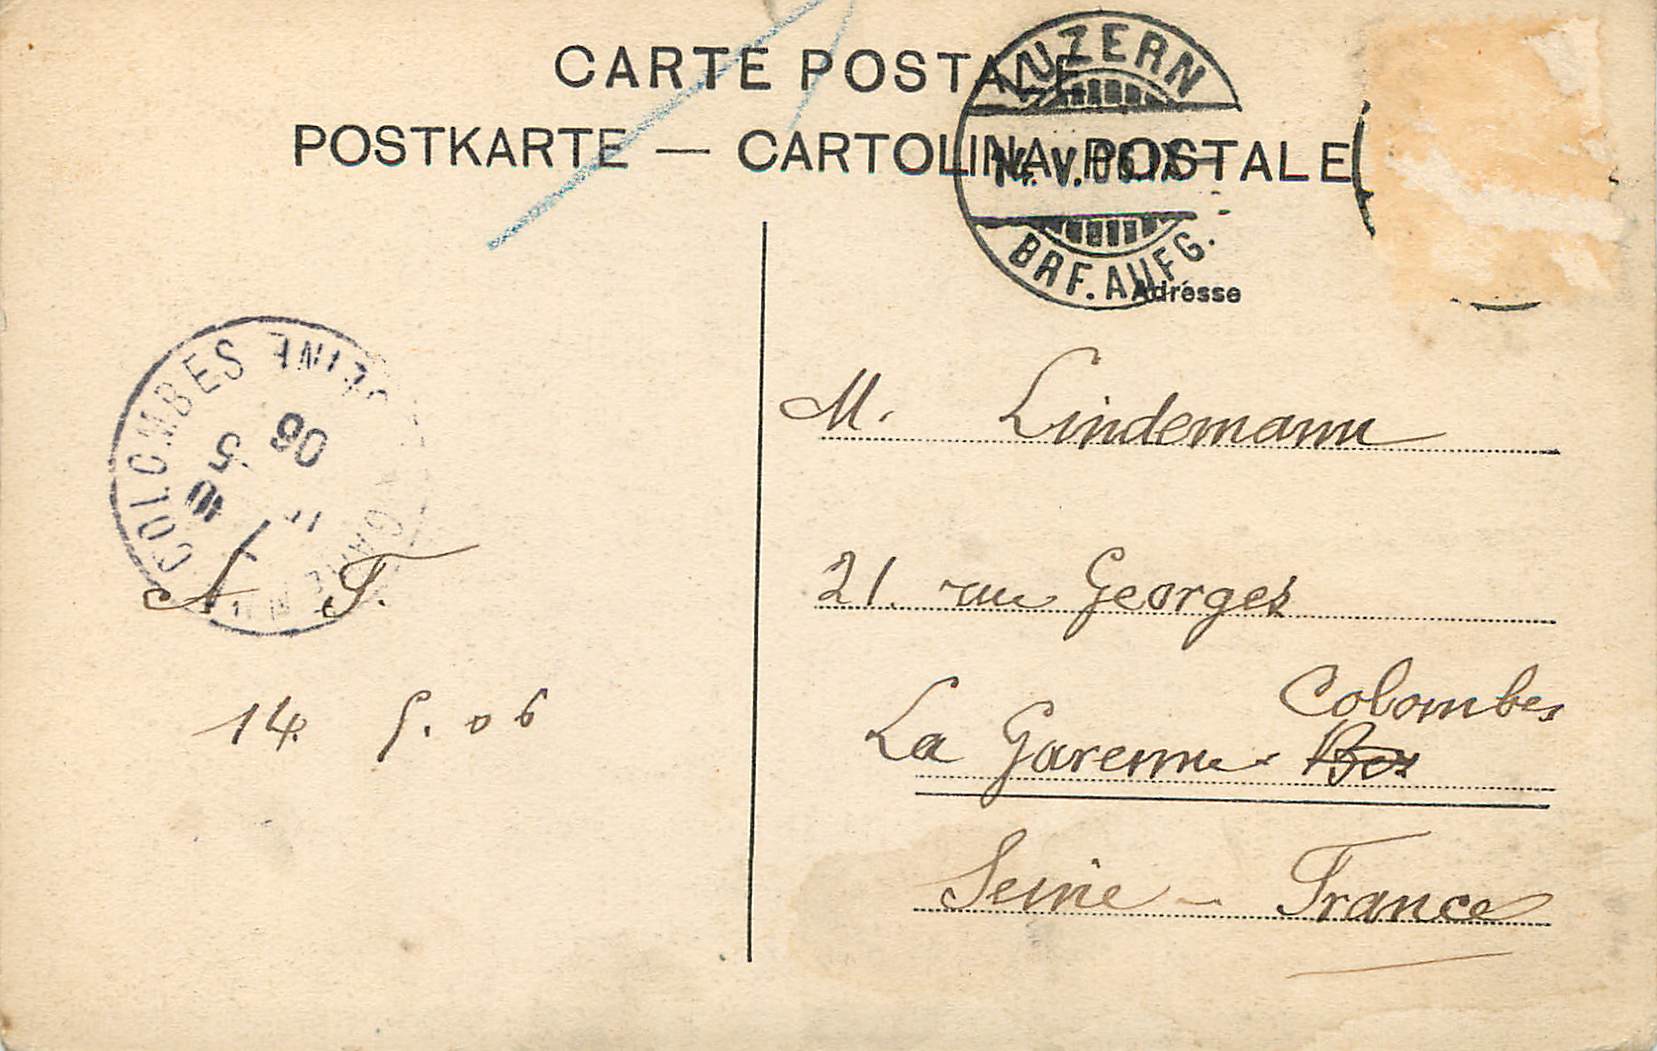 CARTE POSTALE
POSTKARTE — CARTOLINA POSTALE
LUZERN
14. V. 06. IX–
BRF. AUFG.
Adresse
COLOMBES
SEINE
5
06
M. Lindemann
21. rue Georges
Colombes
La Garenne-
Seine - France
A T.
14. 5. 06